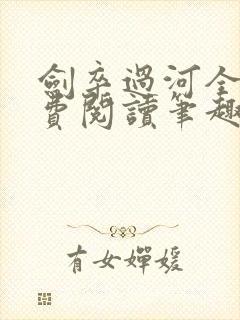 劍卒過河全
費閱讀筆趣
有女嬋媛